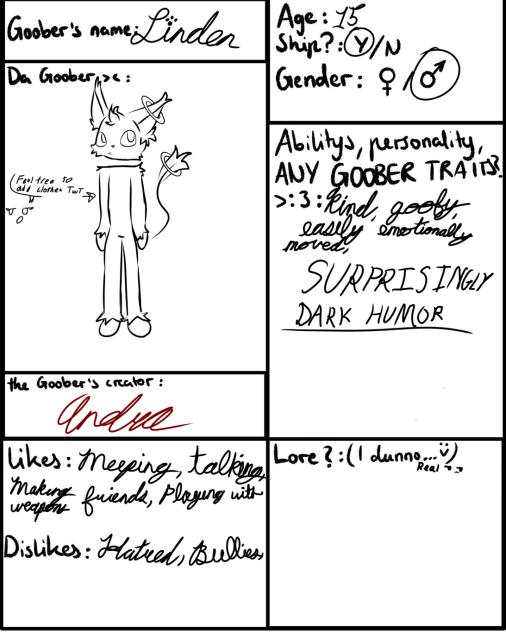 Goober's name: Linden
Da Goober >:<:
Feel free to
add clothes TwT
the Goober's creator:
Andrea
Likes: Meeping, talking,
Making friends, Playing with
weapons
Dislikes: Hatred, Bullies,
Age: 15
Ship?: Y/N
Gender: ♀/♂
Abilitys, personality,
ANY GOOBER TRAITS
>:3: Kind, goofy,
easily emotionally
moved,
SURPRISINGLY
DARK HUMOR
Lore?: (I dunno...)
Real